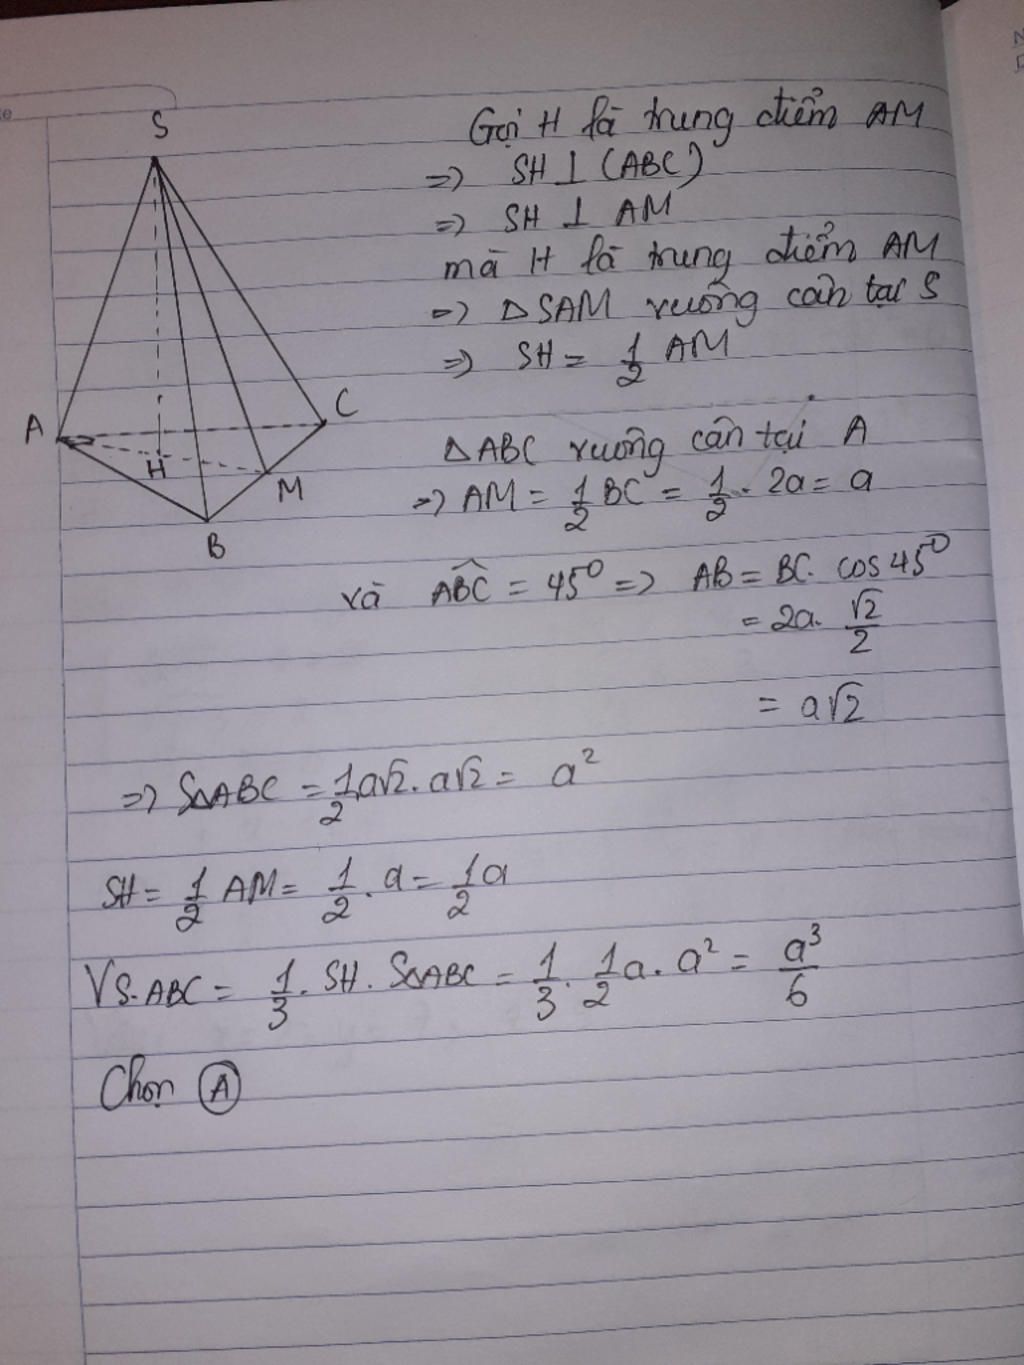 S
Gọi H là trung điểm AM
=> SH ⊥ (ABC)
=> SH ⊥ AM
mà H là trung điểm AM
=> △SAM vuông cân tại S
=> SH = 1/2 AM
C
A
H
M
B
△ABC vuông cân tại A
=> AM = 1/2 BC = 1/2 . 2a = a
và ABC = 45° => AB = BC. cos 45°
= 2a. √2/2
= a√2
=> S△ABC = 1/2 a√2 . a√2 = a²
SH = 1/2 AM = 1/2 . a = 1/2 a
VS.ABC = 1/3 . SH . S△ABC = 1/3 . 1/2 a . a² = a³/6
Chọn A